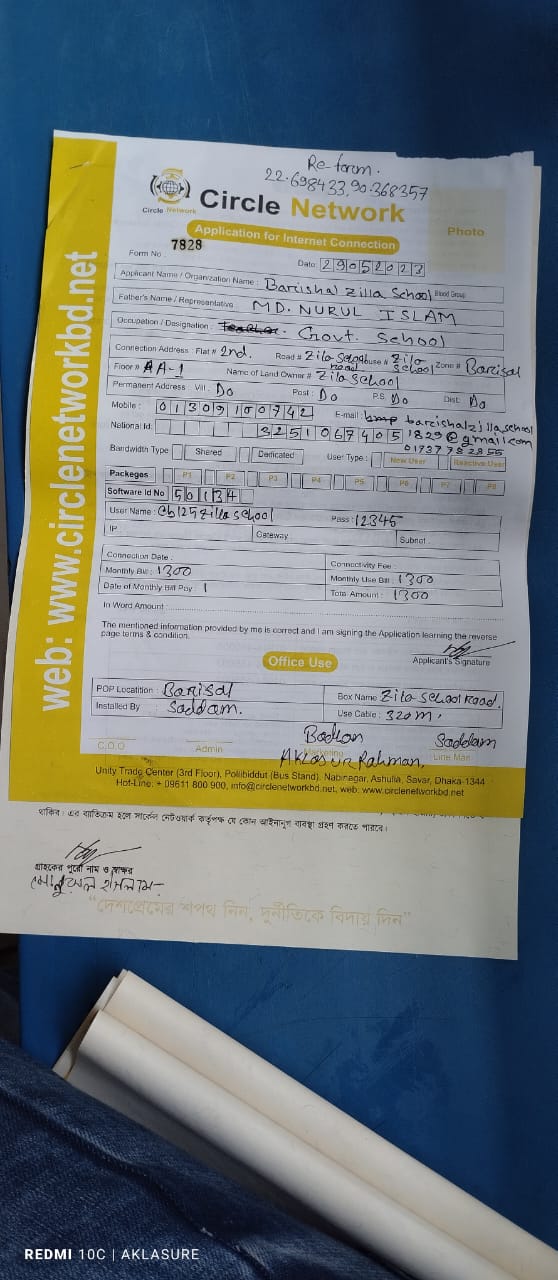 Re-foram.
22.698433,90.368357
Circle Network
Circle Network
Photo
Application for Internet Connection
Form No : 7828
Date: 29052023
Applicant Name / Organization Name : Barishal Zilla School Blood Group
Father's Name / Representative : MD. NURUL ISLAM
Occupation / Designation : Govt. School
Connection Address : Flat # 2nd. Road # Zila School road House # Zila School Zone # Barisal
Floor # AA-1 Name of Land Owner # Zila School
Permanent Address Vill : Do Post : Do P.S. Do Dist: Do
Mobile : 01309100742 E-mail : bmp barishalzillaschool
1829@gmail.com
National Id: 3251067405
01737782855
Bandwidth Type Shared Dedicated User Type : New User Reactive User
Packeges P1 P2 P3 P4 P5 P6 P7 P8
Software Id No 50134
User Name : Cb125zillaschool Pass : 12345
IP Gateway Subnet
Connection Date : Connectivity Fee :
Monthly Bill : 1300 Monthly Use Bill : 1300
Date of Monthly Bill Pay : 1 Total Amount : 1300
In Word Amount :
The mentioned information provided by me is correct and I am signing the Application learning the reverse
page terms & condition.
Applicant's Signature
Office Use
POP Locatition : Barisal Box Name Zila School Road.
Installed By : Saddam. Use Cable : 320m.
Saddam
C.O.O Admin Marketing Line Man
Aklasur Rahman.
Unity Trade Center (3rd Floor), Pollibiddut (Bus Stand), Nabinagar, Ashulia, Savar, Dhaka-1344
Hot-Line: + 09611 800 900, info@circlenetworkbd.net, web: www.circlenetworkbd.net
web: www.circlenetworkbd.net
থাকিব। এর ব্যতিক্রম হলে সার্কেল নেটওয়ার্ক কর্তৃপক্ষ যে কোন আইনানুগ ব্যবস্থা গ্রহণ করতে পারবে।
গ্রাহকের পুরো নাম ও স্বাক্ষর
“দেশপ্রেমের শপথ নিন, দুর্নীতিকে বিদায় দিন”
REDMI 10C | AKLASURE